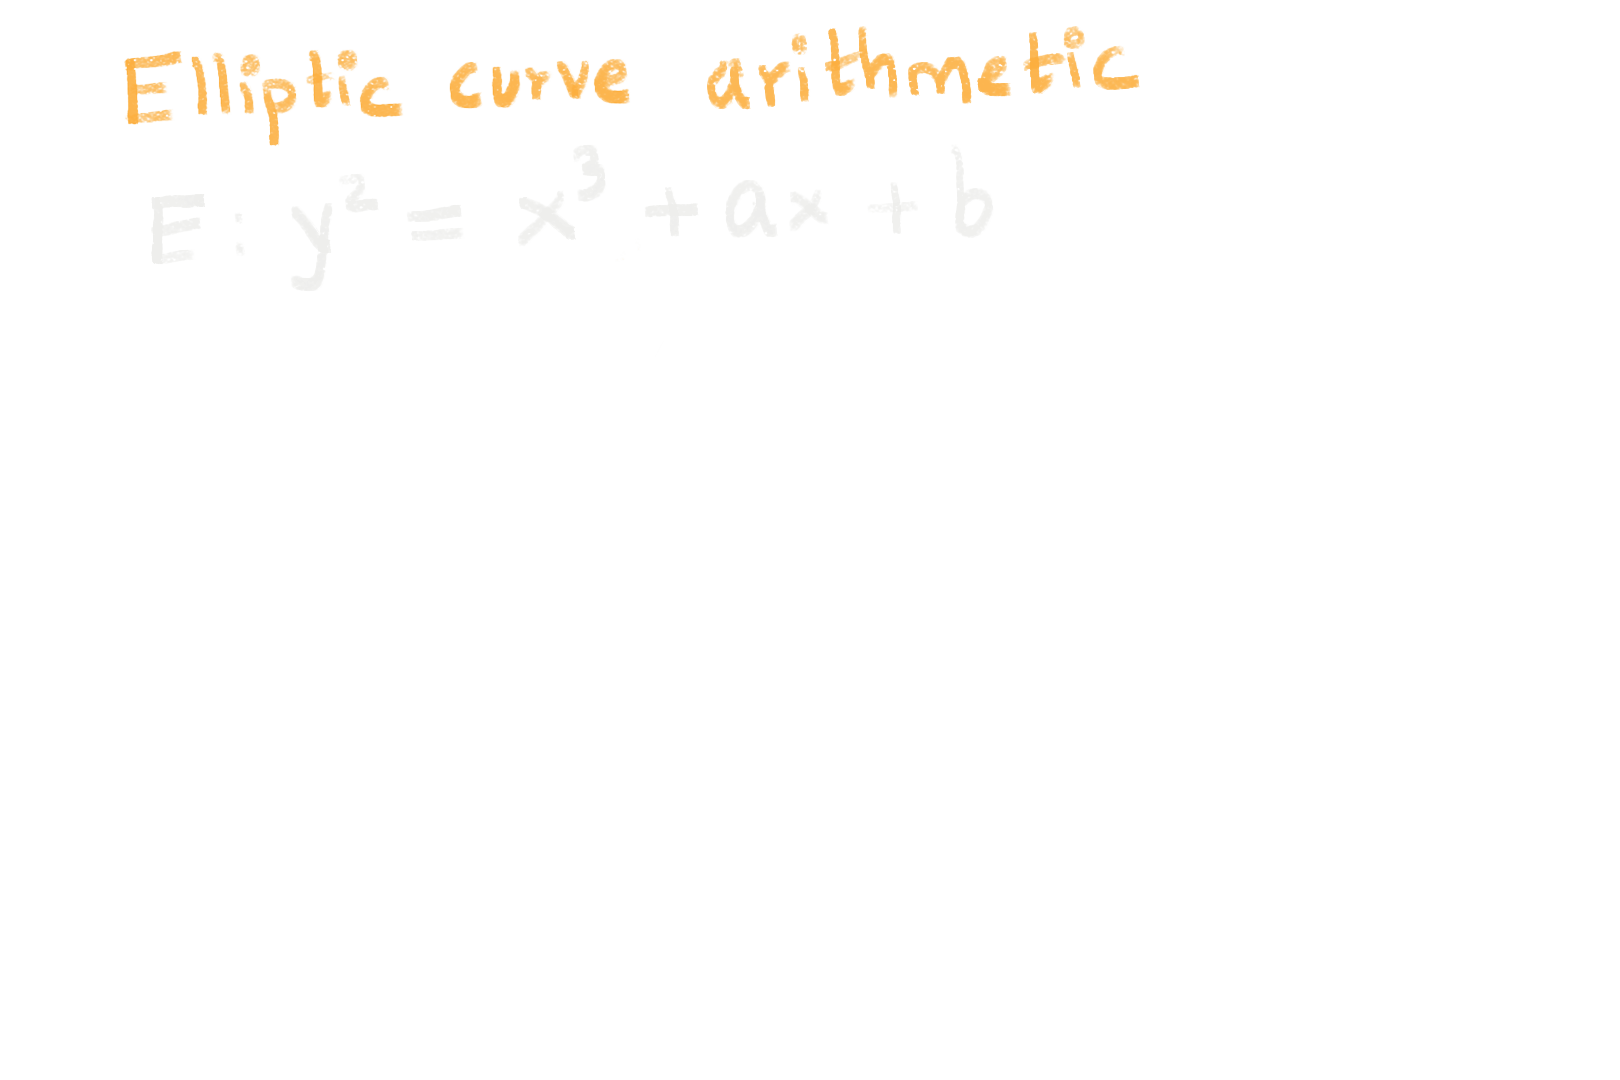 Elliptic curve arithmetic
E: y² = x³ + ax + b